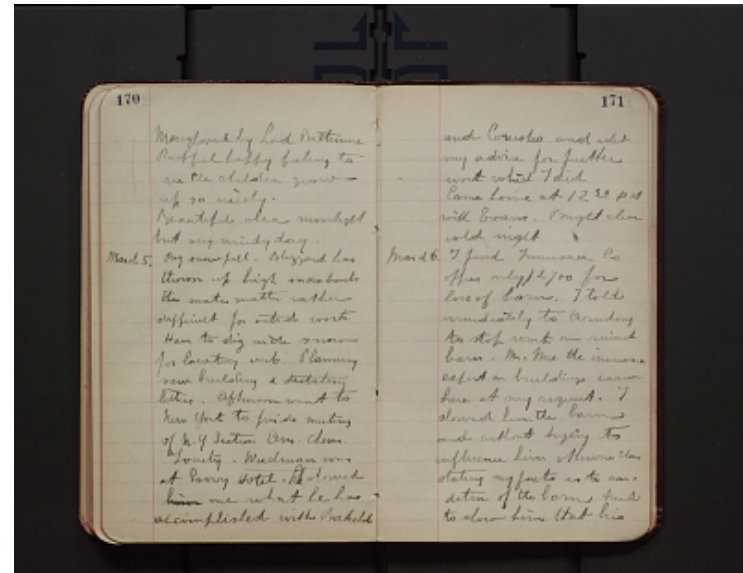 170
Maryland by Lord Baltimore
happy feeling to
see the children grow
up so nicely.
Beautiful clear moonlight
but very windy day.
March 5. Big snowfall. Blizzard has
thrown up high snowbanks
this makes matter rather
difficult for outside work
Have to dig in the snow
for locating Planning
new building & dictating
letters. Afternoon went to
New York to preside meeting
of N.Y. Section Am. Chem.
Society. Wiedmann was
at Hotel. He showed
him me what he has
accomplished with Bakelite
171
and and
my advice for further
work which I did
Came home at 12 32 
with Evans. Bright clear
cold night
March 6. I find Insurance Co
offers only $2700 for
loss of barn. I told
immediately to
to stop work on ruined
barn. Mr. the insurance
expert on buildings came
here at my request. I
showed him the barn
and without trying to
influence him otherwise than
stating my facts as to con-
dition of the barn tried
to show him that his